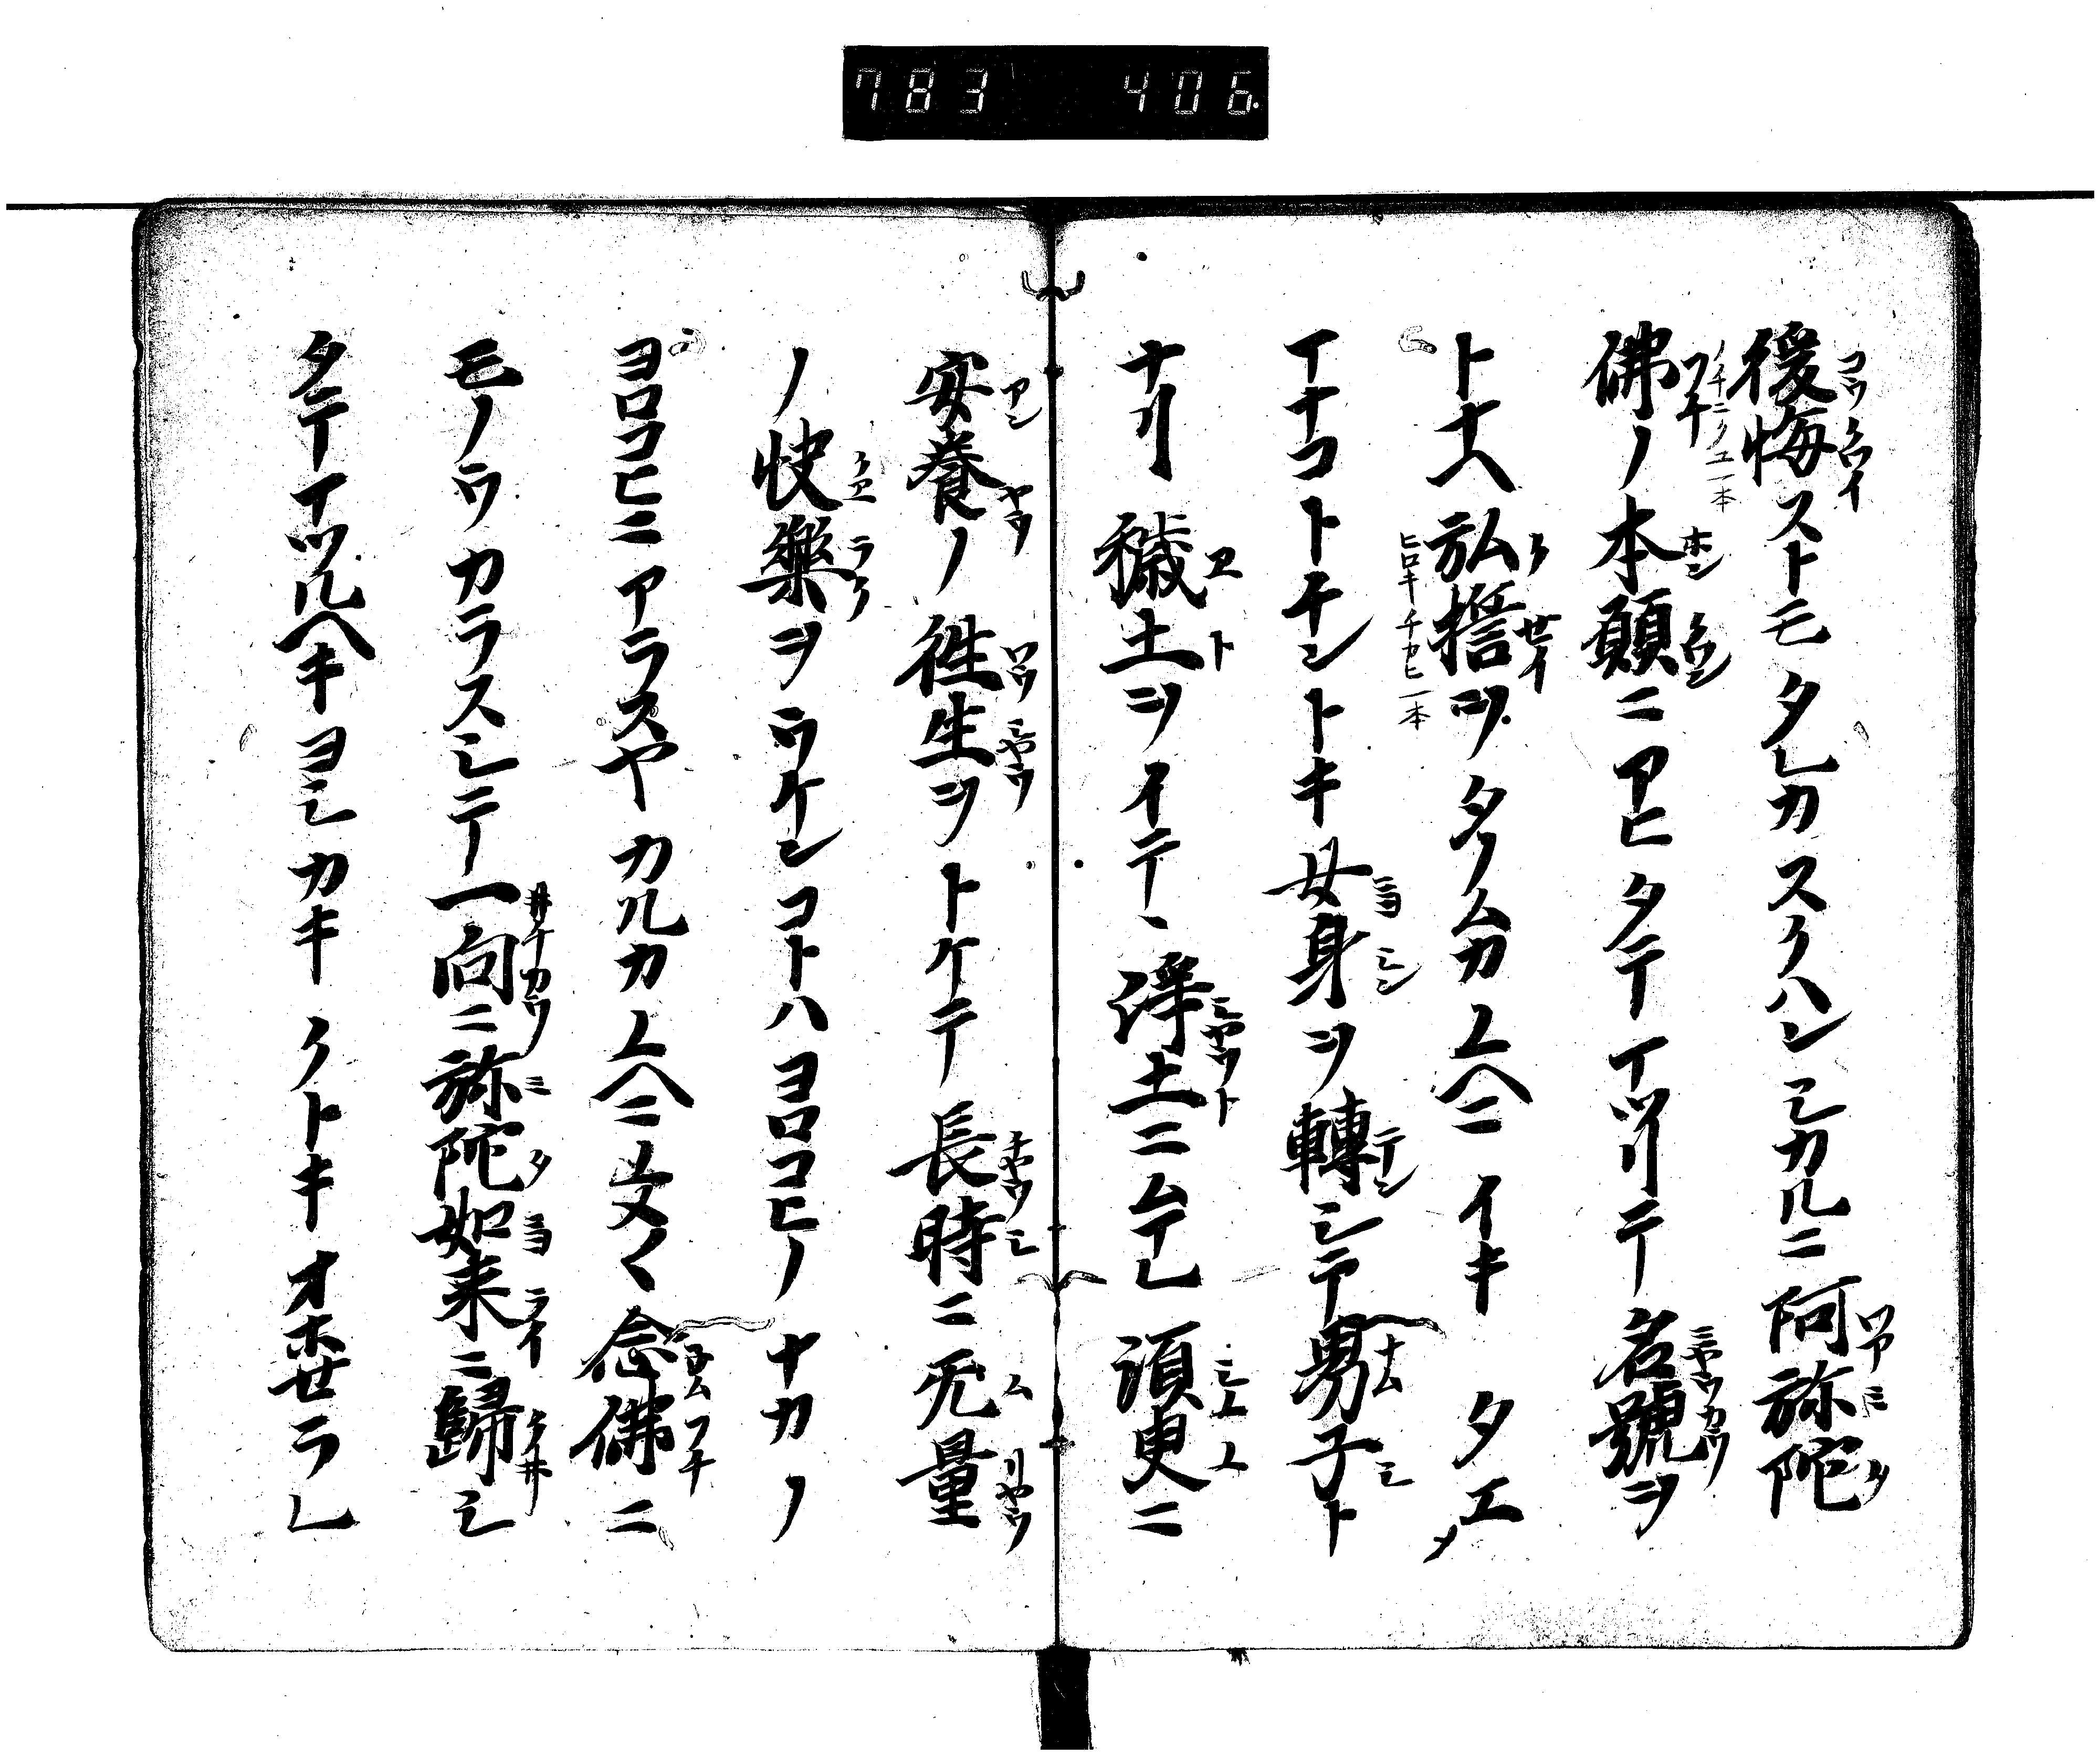 783 406
後悔ストモタレカスクハンシカルニ阿弥陀
佛ノ本願ニアヒタテマツリテ名号ヲ
トナヘ弘誓ヲタノムカユヘニイキタエ
マナコトチントキ女身ヲ轉シテ男子ト
ナリ穢土ヲイテヽ浄土ニムマレ須臾ニ
安養ノ往生ヲトケテ長時ニ无量
ノ快樂ヲウケンコトハヨロコヒノナカノ
ヨロコヒニアラスヤカルカユヘニ念佛ニ
モノウカラスシテ一向ニ弥陀如来ニ歸シ
タテマツルヘキヨシカキクトキオホセラレ